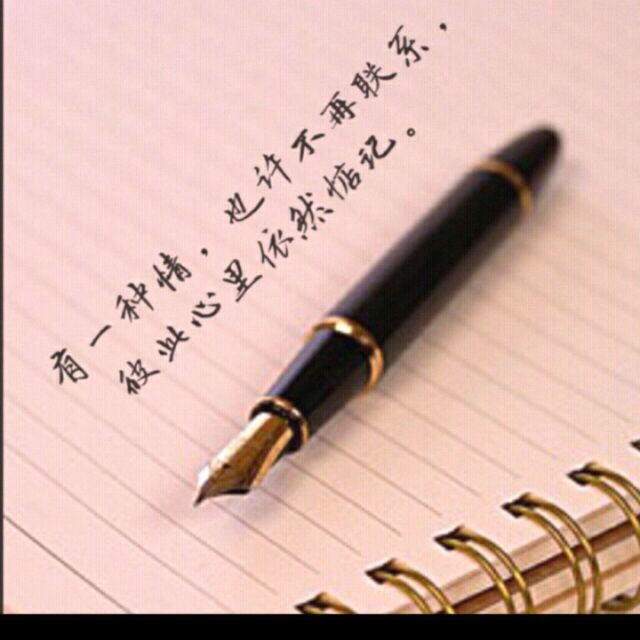 有一种情，也许不再联系，
彼此心里依然惦记。